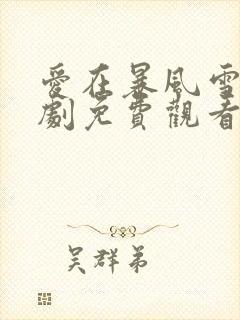 愛在暴風雪
劇免費觀看
吴群弟